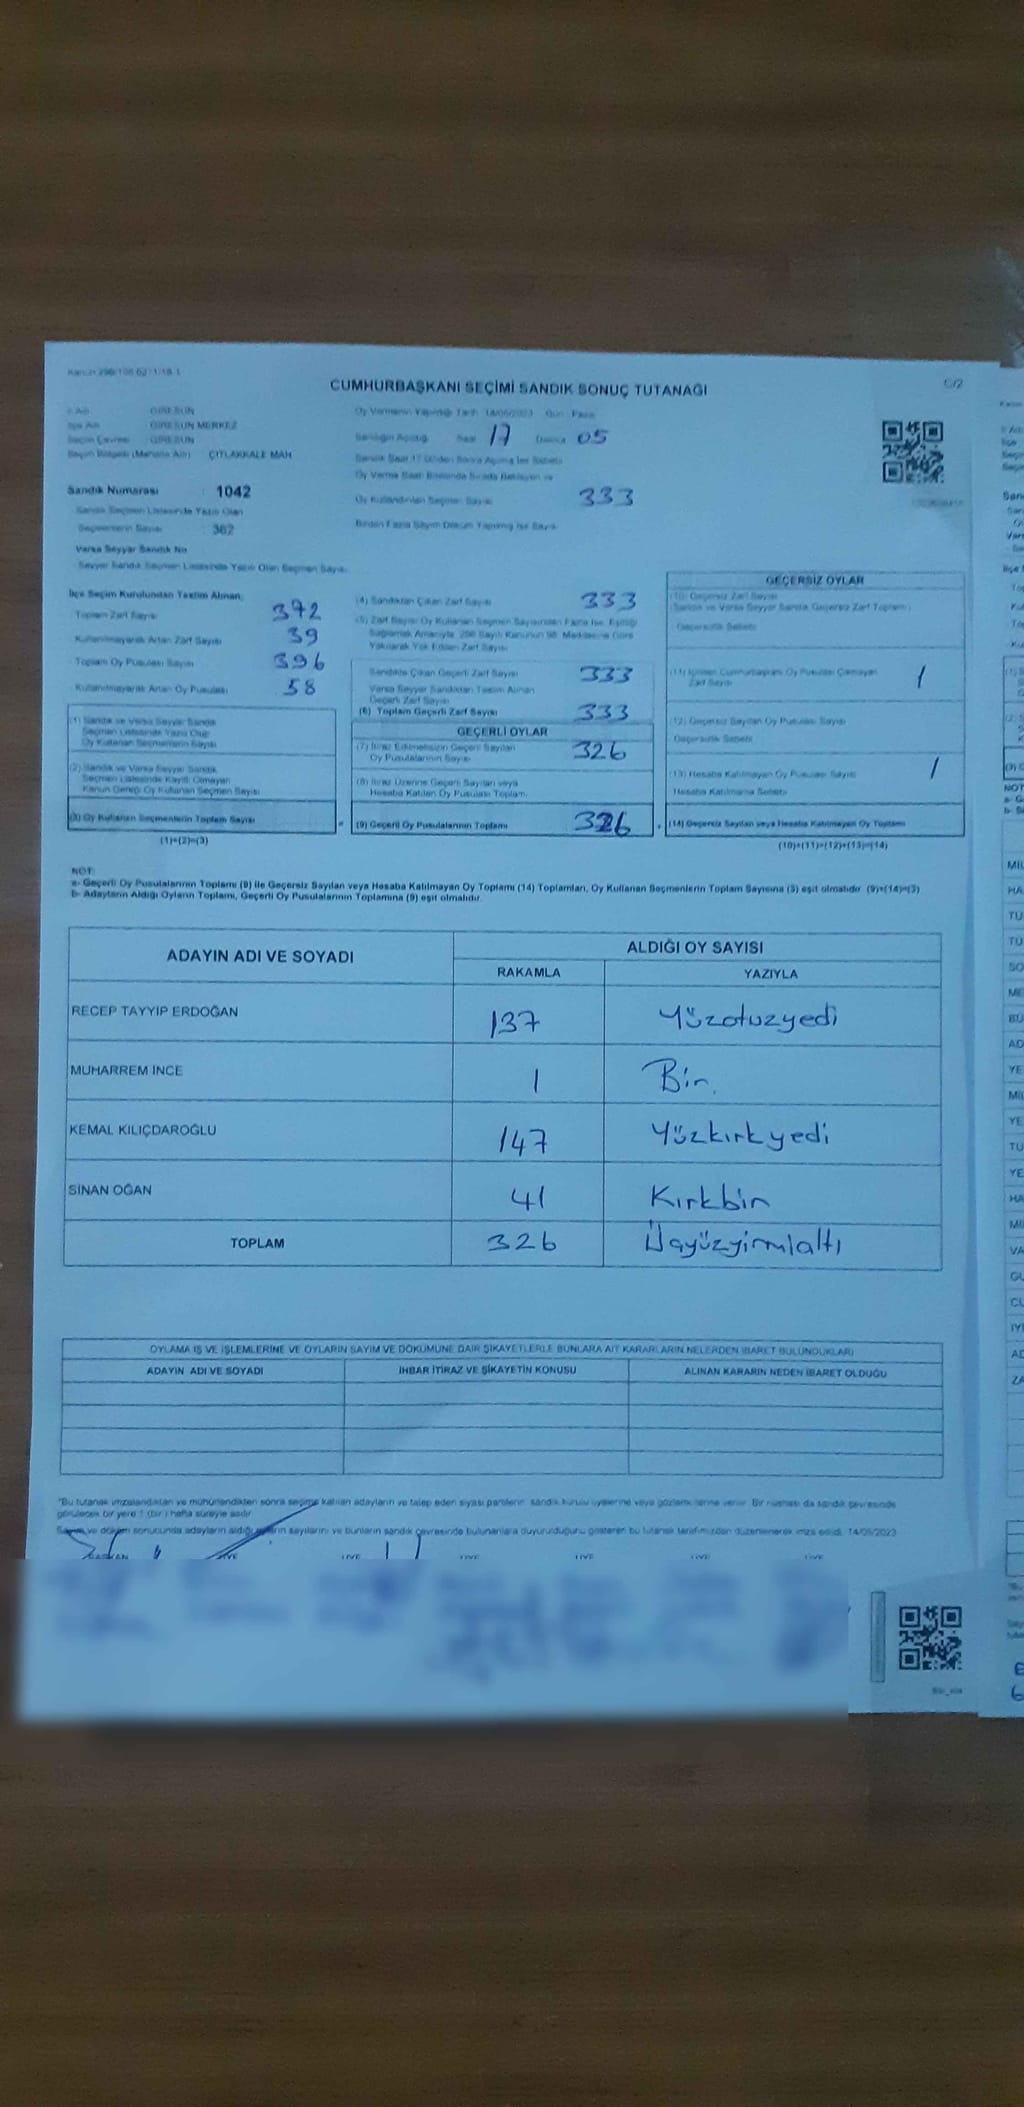 CUMHURBAŞKANI SEÇİMİ SANDIK SONUÇ TUTANAĞI
C/2
İl Adı GİRESUN
İlçe Adı GİRESUN MERKEZ
Seçim Çevresi GİRESUN
Seçim Bölgesi (Mahalle Adı) ÇITLAKKALE MAH
Oy Vermenin Yapıldığı Tarih 14/05/2023 Gün Pazar
Sandığın Açıldığı Saat 17 Dakika 05
Sandık Numarası : 1042
Sandık Seçmen Listesinde Yazılı Olan
Seçmenlerin Sayısı 362
Oy Kullandırılan Seçmen Sayısı 333
Birden Fazla Sayım Döküm Yapılmış İse Sayısı
Varsa Seyyar Sandık No
Seyyar Sandık Seçmen Listesinde Yazılı Olan Seçmen Sayısı
İlçe Seçim Kurulundan Teslim Alınan;
Toplam Zarf Sayısı 372
Kullanılmayarak Artan Zarf Sayısı 39
Toplam Oy Pusulası Sayısı 396
Kullanılmayarak Artan Oy Pusulası 58
(1) Sandık ve Varsa Seyyar Sandık
Seçmen Listesinde Yazılı Olup
Oy Kullanan Seçmenlerin Sayısı
(2) Sandık ve Varsa Seyyar Sandık
Seçmen Listesinde Kayıtlı Olmayan
Kanun Gereği Oy Kullanan Seçmen Sayısı
(3) Oy Kullanan Seçmenlerin Toplam Sayısı
(1)+(2)=(3)
(4) Sandıktan Çıkan Zarf Sayısı 333
(5) Zarf Sayısı Oy Kullanan Seçmen Sayısından Fazla İse, Eşitliği
Sağlamak Amacıyla, 298 Sayılı Kanunun 98. Maddesine Göre
Yakılarak Yok Edilen Zarf Sayısı
Sandıkta Çıkan Geçerli Zarf Sayısı 333
Varsa Seyyar Sandıktan Teslim Alınan
Geçerli Zarf Sayısı
(6) Toplam Geçerli Zarf Sayısı 333
GEÇERLİ OYLAR
(7) İtiraz Edilmeksizin Geçerli Sayılan
Oy Pusulalarının Sayısı 326
(8) İtiraz Üzerine Geçerli Sayılan veya
Hesaba Katılan Oy Pusulası Toplamı
= (9) Geçerli Oy Pusulalarının Toplamı 326 +
GEÇERSİZ OYLAR
(10) Geçersiz Zarf Sayısı
(Sandık ve Varsa Seyyar Sandık Geçersiz Zarf Toplamı)
Geçersizlik Sebebi
(11) İçinden Cumhurbaşkanı Oy Pusulası Çıkmayan
Zarf Sayısı 1
(12) Geçersiz Sayılan Oy Pusulası Sayısı
Geçersizlik Sebebi
(13) Hesaba Katılmayan Oy Pusulası Sayısı 1
Hesaba Katılmama Sebebi
(14) Geçersiz Sayılan veya Hesaba Katılmayan Oy Toplamı
(10)+(11)+(12)+(13)=(14)
NOT:
a- Geçerli Oy Pusulalarının Toplamı (9) ile Geçersiz Sayılan veya Hesaba Katılmayan Oy Toplamı (14) Toplamları, Oy Kullanan Seçmenlerin Toplam Sayısına (3) eşit olmalıdır. (9)+(14)=(3)
b- Adayların Aldığı Oyların Toplamı, Geçerli Oy Pusulalarının Toplamına (9) eşit olmalıdır.
ADAYIN ADI VE SOYADI
ALDIĞI OY SAYISI
RAKAMLA YAZIYLA
RECEP TAYYİP ERDOĞAN 137 Yüzotuzyedi
MUHARREM İNCE 1 Bir.
KEMAL KILIÇDAROĞLU 147 Yüzkırkyedi
SİNAN OĞAN 41 Kırkbir
TOPLAM 326 Üçyüzyirmialtı
OYLAMA İŞ VE İŞLEMLERİNE VE OYLARIN SAYIM VE DÖKÜMÜNE DAİR ŞİKAYETLERLE BUNLARA AİT KARARLARIN NELERDEN İBARET BULUNDUKLARI
ADAYIN ADI VE SOYADI İHBAR İTİRAZ VE ŞİKAYETİN KONUSU ALINAN KARARIN NEDEN İBARET OLDUĞU
*Bu tutanak imzalandıktan ve mühürlendikten sonra seçime katılan adayların ve talep eden siyasi partilerin sandık kurulu üyelerine veya gözlemcilerine verilir. Bir nüshası da sandık çevresinde
görülecek bir yere 1 (bir) hafta süreyle asılır.
Sayım ve döküm sonucunda adayların aldığı oyların sayılarını ve bunların sandık çevresinde bulunanlara duyurulduğunu gösteren bu tutanak tarafımızdan düzenlenerek imza edildi. 14/05/2023
BAŞKAN ÜYE ÜYE ÜYE ÜYE ÜYE ÜYE